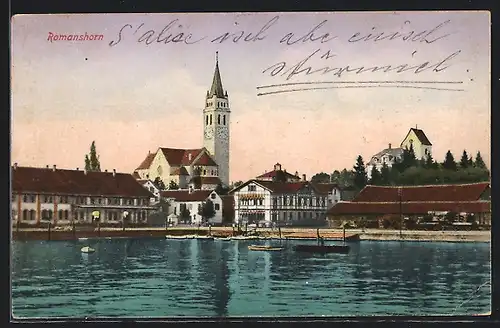 Romanshorn
S'alise isch abe einisch
stürmisch